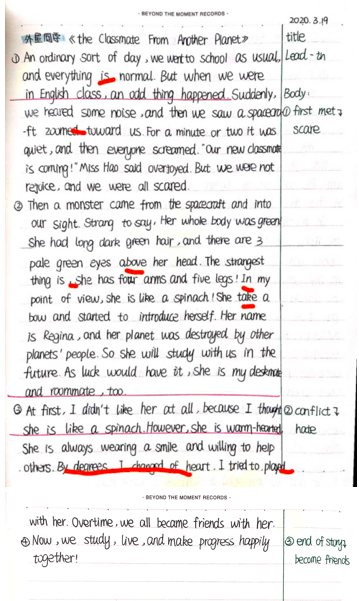 · BEYOND THE MOMENT RECORDS ·
2020. 3.19
外星同学 《the Classmate From Another Planet》
title
① An ordinary sort of day, we went to school as usual,
Lead-in
and everything is normal. But when we were
in English class, an odd thing happened. Suddenly,
Body:
we heared some noise, and then we saw a spacecra
① first met →
-ft zoomed toward us. For a minute or two it was
scare
quiet, and then everyone screamed. "Our new classmate
is coming!" Miss Hao said overjoyed. But we were not
rejoice, and we were all scared.
② Then a monster came from the spacecraft and into
our sight. Strang to say, Her whole body was green
She had long dark green hair, and there are 3
pale green eyes above her head. The strangest
thing is, she has four arms and five legs! In my
point of view, she is like a spinach! She take a
bow and started to introduce herself. Her name
is Regina, and her planet was destroyed by other
planets' people. So she will study with us in the
future. As luck would have it, she is my deskmate
and roommate, too.
③ At first, I didn't like her at all, because I thought
② conflict →
she is like a spinach. However, she is warm-hearted.
hate
She is always wearing a smile and willing to help
others. By degrees, I changed of heart. I tried to played
· BEYOND THE MOMENT RECORDS ·
with her. Overtime, we all became friends with her.
④ Now, we study, live, and make progress happily
③ end of story
together!
become friends